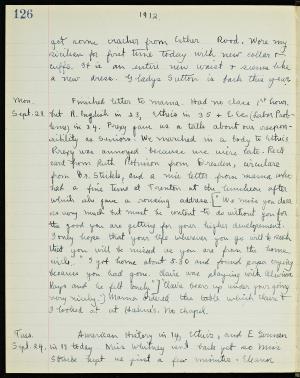 126
1912
get some crackers from Esther Rood. Wore my
for first time today with new collar &
cuffs. It is an entire new waist & seems like
a new dress. Gladys Sutton is back this year
Mon. Finished letter to mama. Had no class 1st hour.
Sept. 23. But R. English in 23, Ethics in 35 & E. Sec (Labor Prob-
lems) in 24. Prexy gave us a talk about our respon-
sibility as Seniors. We marched in a body to Ethics
Prexy was annoyed because we were late. Rec'd
card from Ruth from Dresden, circulars
from Dr. and a nice letter from mama who
had a fine time at Trenton at the luncheon after
which she gave a rousing address. "We miss you dear
so very much but must be content to do without you for
the good you are getting for your higher development.
I only hope that your life wherever you go will so reach
that you will be missed as you are from the home
circle." I got home about 5:30 and found papa crying
because you had gone. Claire was playing with
Kays and he felt lonely. Claire bears up under your going
very nicely. Mama ordered the table which Claire &
I looked at at Hahne's. No chapel.
Tues. American History in 14, Ethics, and E
Sept. 24. in 13 today. Miss Whitney isn't back yet so Miss
kept us just a few minutes. Eleanor